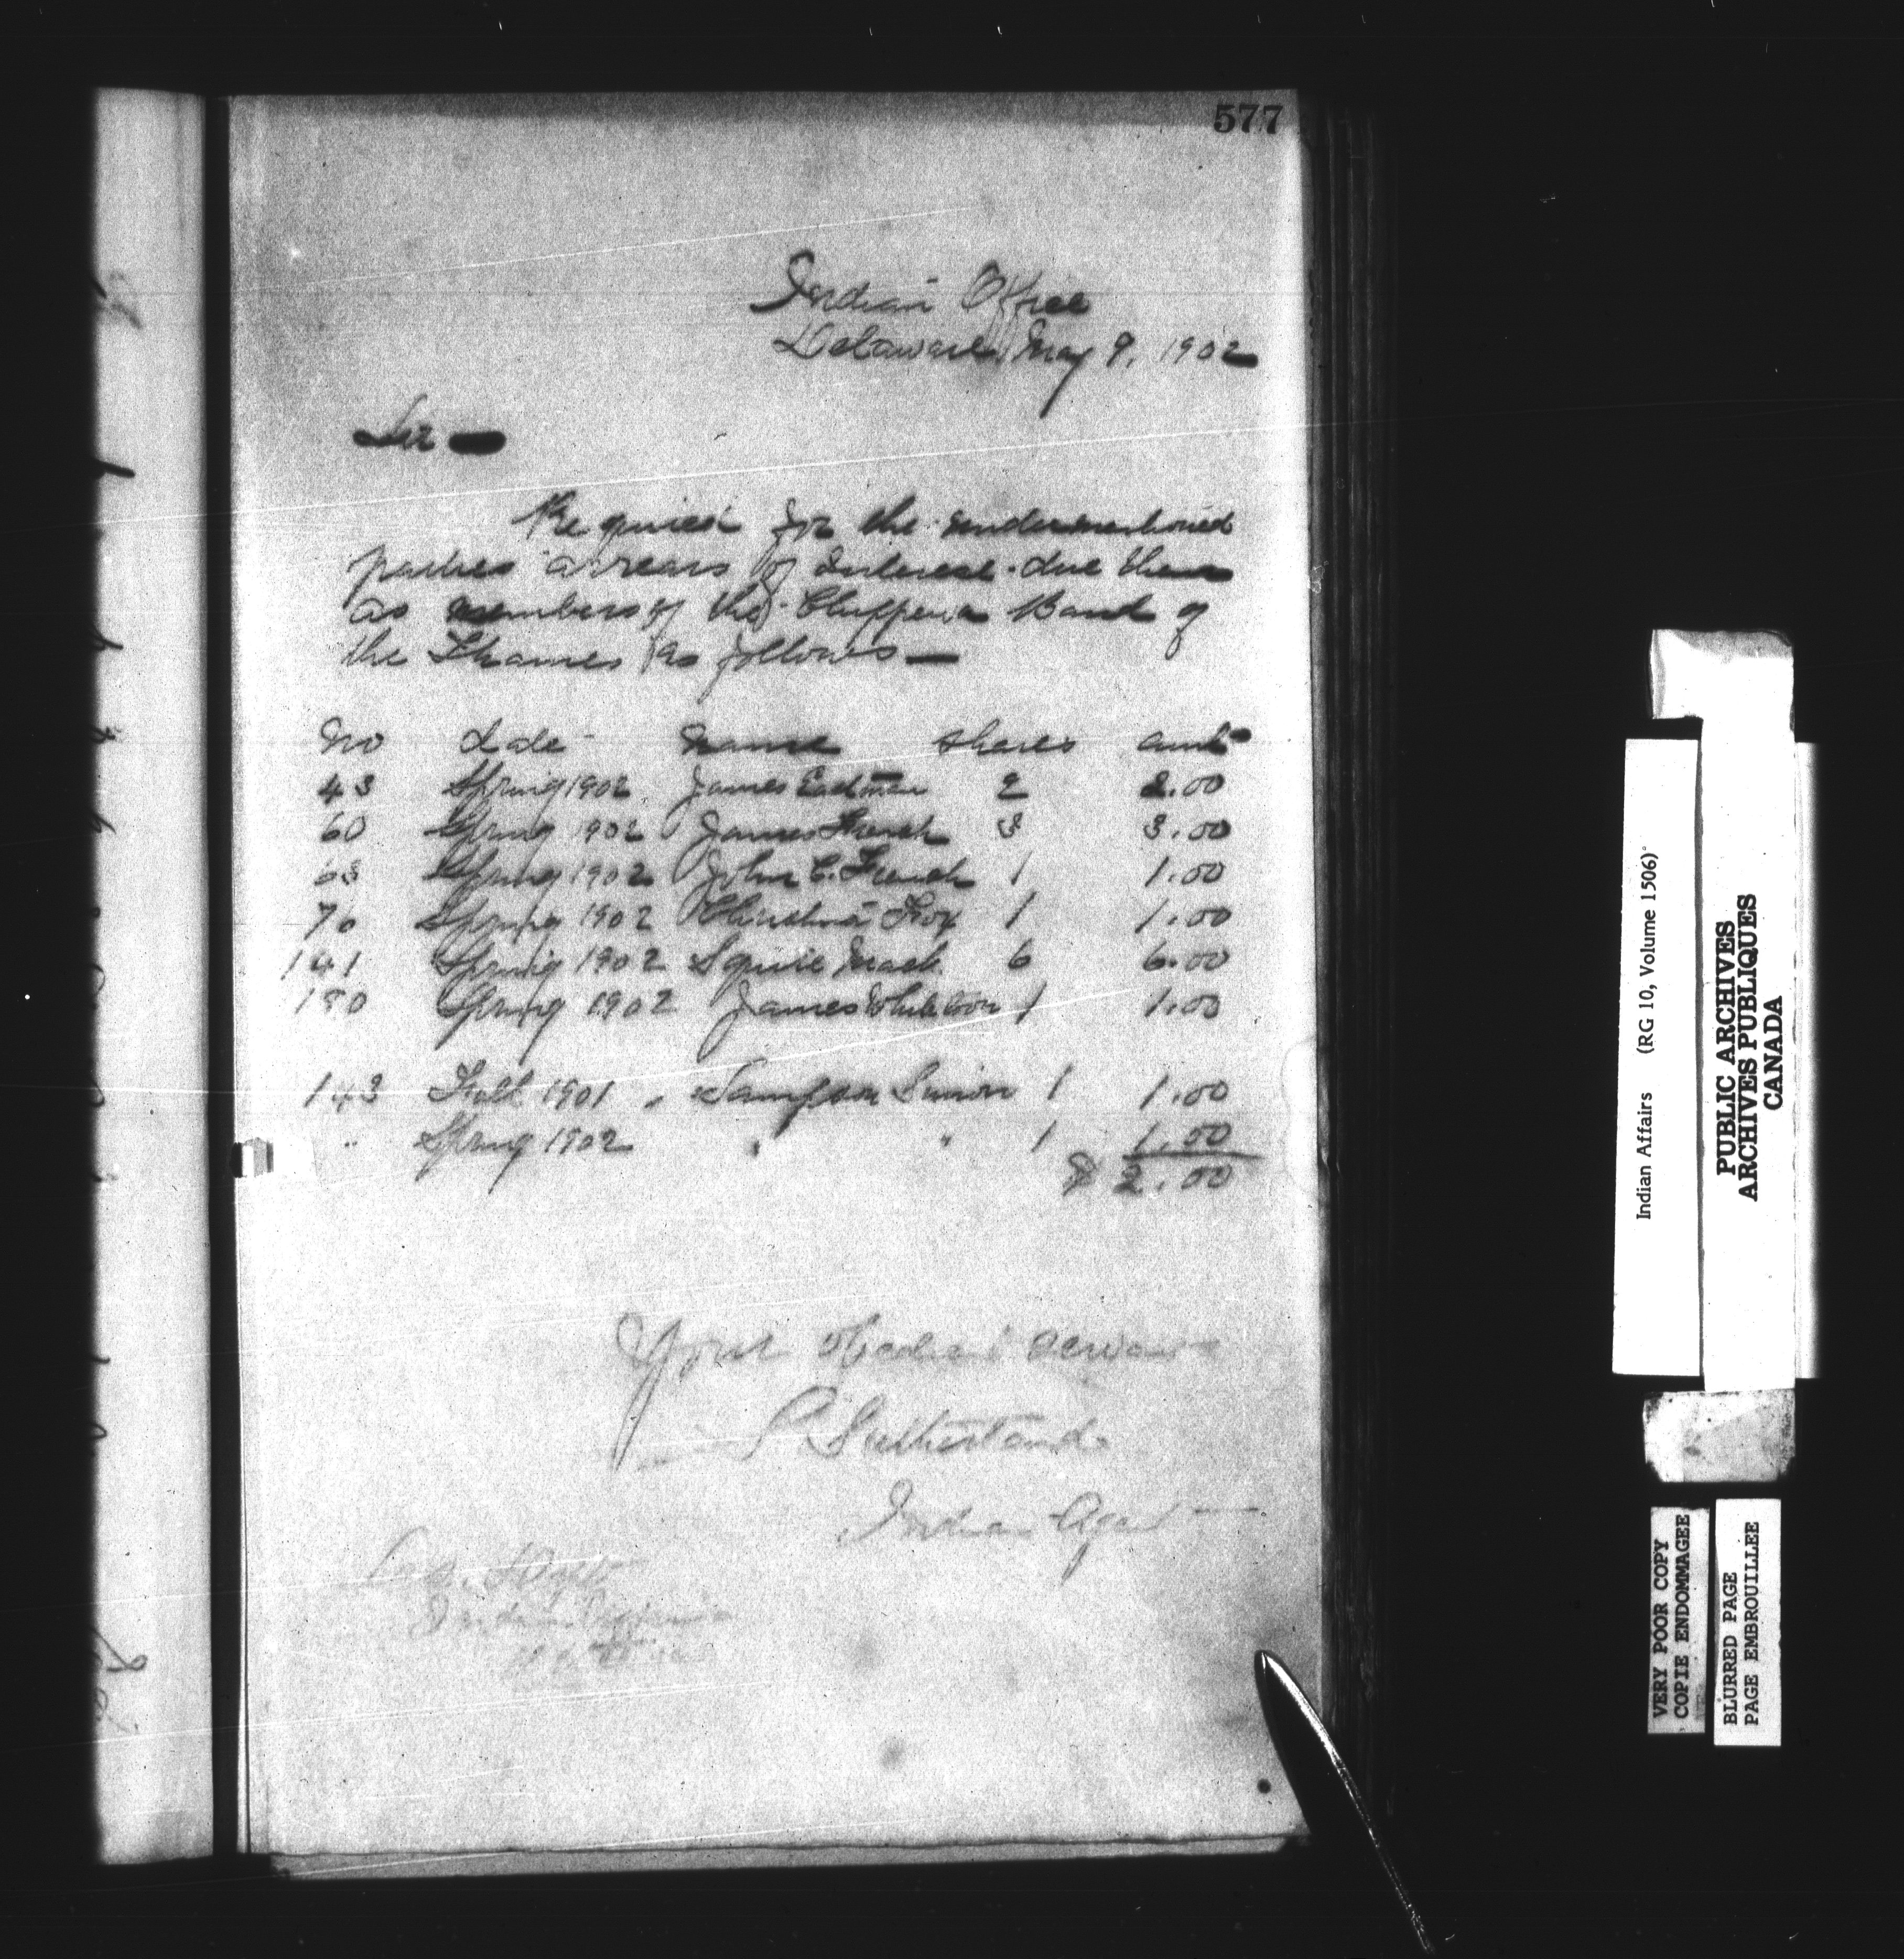 577
Indian Office
Delaware May 9, 1902
Sir —
Required for the undermentioned
parties arrears of Interest due them
as members of the Chippewa Band of
the Thames as follows —
No date name shares amt
43 Spring 1902 James Eastman 2 2.00
60 Spring 1902 James French 3 3.00
63 Spring 1902 John C. French 1 1.00
70 Spring 1902 Christina Fox 1 1.00
141 Spring 1902 Squire 6 6.00
180 Spring 1902 James 1 1.00
143 Fall 1901 Sampson Simon 1 1.00
" Spring 1902 " " 1 1.00
$ 2.00
Your Obedient Servant
S Sutherland
Indian Agent
Indian Affairs
Ottawa
Indian Affairs (RG 10, Volume 1506)
PUBLIC ARCHIVES
ARCHIVES PUBLIQUES
CANADA
VERY POOR COPY
COPIE ENDOMMAGEE
BLURRED PAGE
PAGE EMBROUILLEE